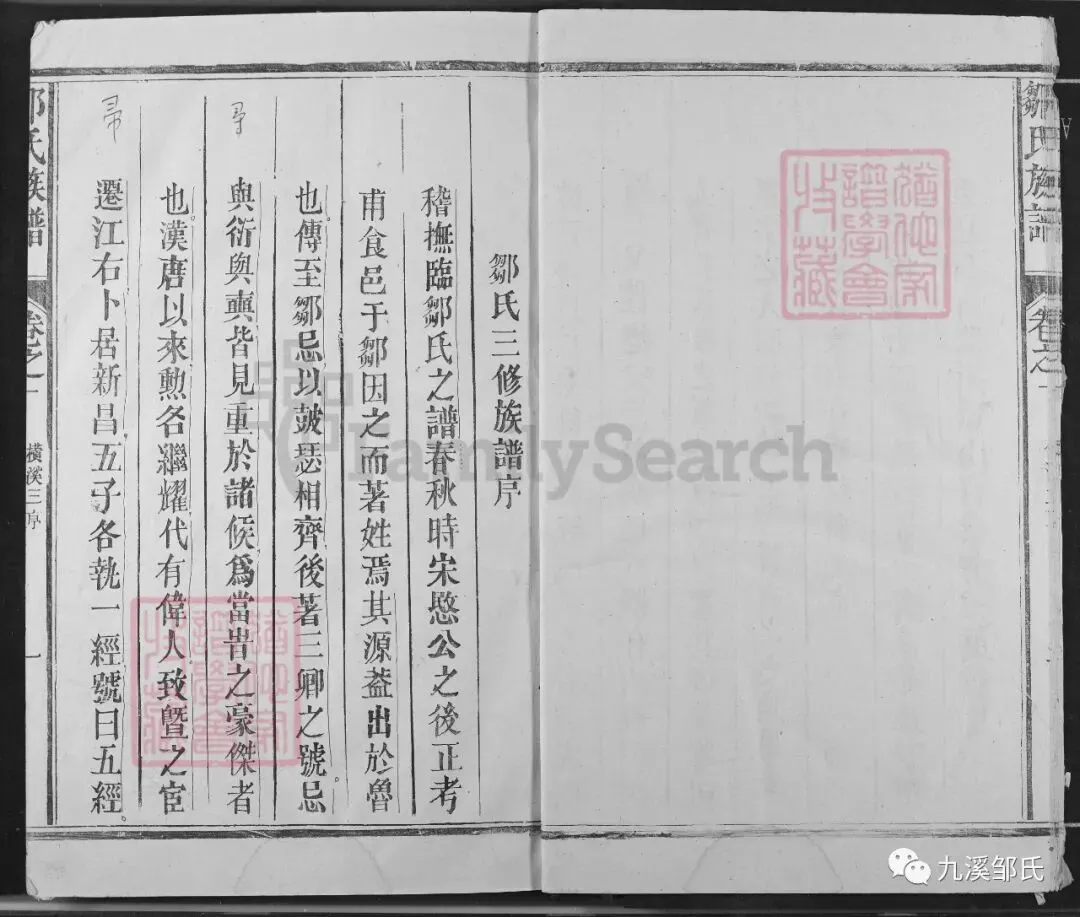 鄒氏族譜
卷之一
猶他家
譜學會
收藏
鄒氏三修族譜序
稽撫臨鄒氏之譜春秋時宋愍公之後正考
甫食邑于鄒因之而著姓焉其源葢出於魯
也傳至鄒忌以鼓瑟相齊後著三卿之號忌
與衍與奭皆見重於諸候爲當旹之豪傑者
也漢唐以來勲各繼燿代有偉人致曁之宦
遷江右卜居新昌五子各執一經號曰五經
猶他家
譜學會
收藏
氏族譜
卷之一
橫溪三序
一
FamilySearch
九溪邹氏